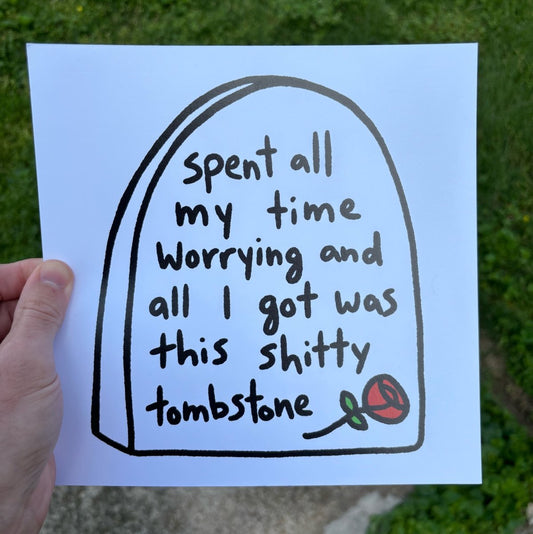 spent all
my time
worrying and
all I got was
this shitty
tombstone